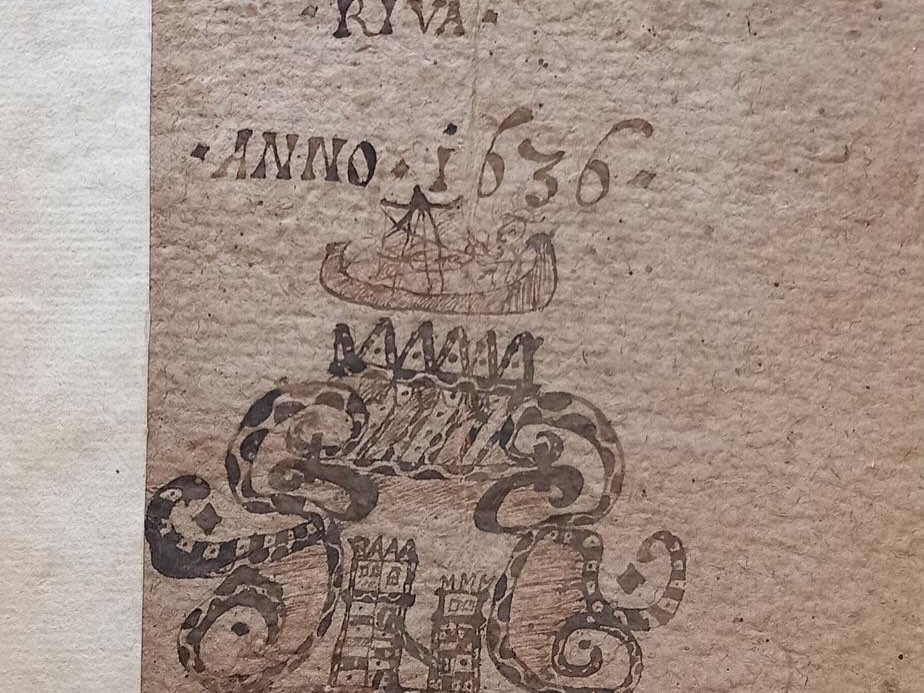 · RIVA ·
· ANNO · 1636 ·